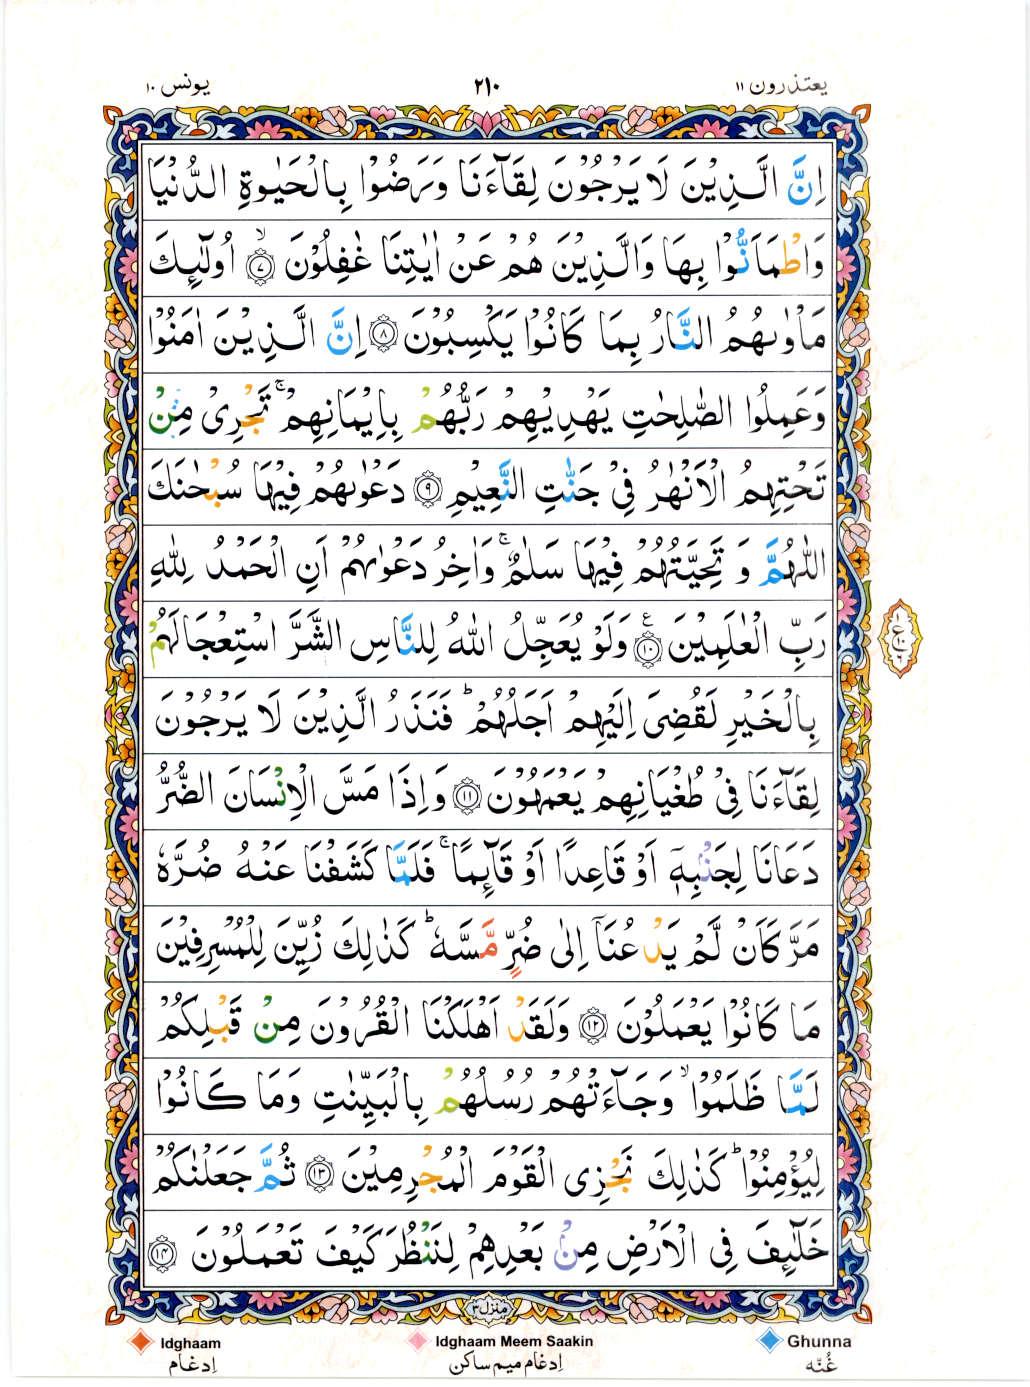 يعتذرون ١١
٢١٠
يونس ١٠
اِنَّ الَّذِيْنَ لَا يَرْجُوْنَ لِقَآءَنَا وَرَضُوْا بِالْحَيٰوةِ الدُّنْيَا
وَاطْمَاَنُّوْا بِهَا وَالَّذِيْنَ هُمْ عَنْ اٰيٰتِنَا غٰفِلُوْنَ ۙ‏﴿۷﴾ اُولٰٓئِكَ
مَاْوٰىهُمُ النَّارُ بِمَا كَانُوْا يَكْسِبُوْنَ ‏﴿۸﴾ اِنَّ الَّذِيْنَ اٰمَنُوْا
وَعَمِلُوا الصّٰلِحٰتِ يَهْدِيْهِمْ رَبُّهُمْ بِاِيْمَانِهِمْ ۚ تَجْرِىْ مِنْ
تَحْتِهِمُ الْاَنْهٰرُ فِىْ جَنّٰتِ النَّعِيْمِ ‏﴿۹﴾ دَعْوٰىهُمْ فِيْهَا سُبْحٰنَكَ
اللّٰهُمَّ وَ تَحِيَّتُهُمْ فِيْهَا سَلٰمٌ ۚ وَاٰخِرُ دَعْوٰىهُمْ اَنِ الْحَمْدُ لِلّٰهِ
رَبِّ الْعٰلَمِيْنَ ‏﴿۱۰﴾ وَلَوْ يُعَجِّلُ اللّٰهُ لِلنَّاسِ الشَّرَّ اسْتِعْجَالَهُمْ
بِالْخَيْرِ لَقُضِىَ اِلَيْهِمْ اَجَلُهُمْ ؕ فَنَذَرُ الَّذِيْنَ لَا يَرْجُوْنَ
لِقَآءَنَا فِىْ طُغْيَانِهِمْ يَعْمَهُوْنَ ‏﴿۱۱﴾ وَاِذَا مَسَّ الْاِنْسَانَ الضُّرُّ
دَعَانَا لِجَنْۢبِهٖۤ اَوْ قَاعِدًا اَوْ قَآئِمًا ۚ فَلَمَّا كَشَفْنَا عَنْهُ ضُرَّهٗ
مَرَّ كَاَنْ لَّمْ يَدْعُنَاۤ اِلٰى ضُرٍّ مَّسَّهٗ ؕ كَذٰلِكَ زُيِّنَ لِلْمُسْرِفِيْنَ
مَا كَانُوْا يَعْمَلُوْنَ ‏﴿۱۲﴾ وَلَقَدْ اَهْلَكْنَا الْقُرُوْنَ مِنْ قَبْلِكُمْ
لَمَّا ظَلَمُوْا ۙ وَجَآءَتْهُمْ رُسُلُهُمْ بِالْبَيِّنٰتِ وَمَا كَانُوْا
لِيُؤْمِنُوْا ؕ كَذٰلِكَ نَجْزِى الْقَوْمَ الْمُجْرِمِيْنَ ‏﴿۱۳﴾ ثُمَّ جَعَلْنٰكُمْ
خَلٰٓئِفَ فِى الْاَرْضِ مِنْۢ بَعْدِهِمْ لِنَنْظُرَ كَيْفَ تَعْمَلُوْنَ ‏﴿۱۴﴾
منزل ٣
Ghunna
Idghaam Meem Saakin
Idghaam
غُنّه
اِدغام ميم ساكن
اِدغام